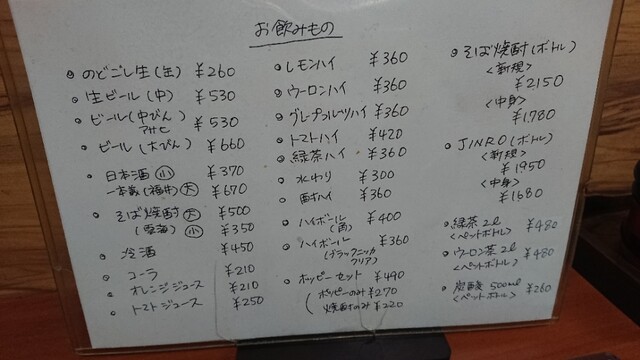 お飲みもの
のどごし生(缶) ¥260
生ビール(中) ¥530
ビール(中びん) ¥530
アサヒ
ビール(大びん) ¥660
日本酒 小 ¥370
一本義(福井) 大 ¥670
そば焼酎 大 ¥500
(雲海) 小 ¥350
冷酒 ¥450
コーラ ¥210
オレンジジュース ¥210
トマトジュース ¥250
レモンハイ ¥360
ウーロンハイ ¥360
グレープフルーツハイ ¥360
トマトハイ ¥420
緑茶ハイ ¥360
水わり ¥300
ハイ ¥360
ハイボール ¥400
(角)
ハイボール ¥360
(ブラックニッカ
クリア)
ホッピーセット ¥490
(ホッピーのみ ¥270
焼酎のみ ¥220
そば焼酎(ボトル)
<新規>
¥2150
<中身>
¥1,780
JINRO(ボトル)
<新規>
¥1950
<中身>
¥1680
緑茶 2ℓ ¥480
<ペットボトル>
ウーロン茶 2ℓ ¥480
<ペットボトル>
炭酸 500mℓ ¥260
<ペットボトル>